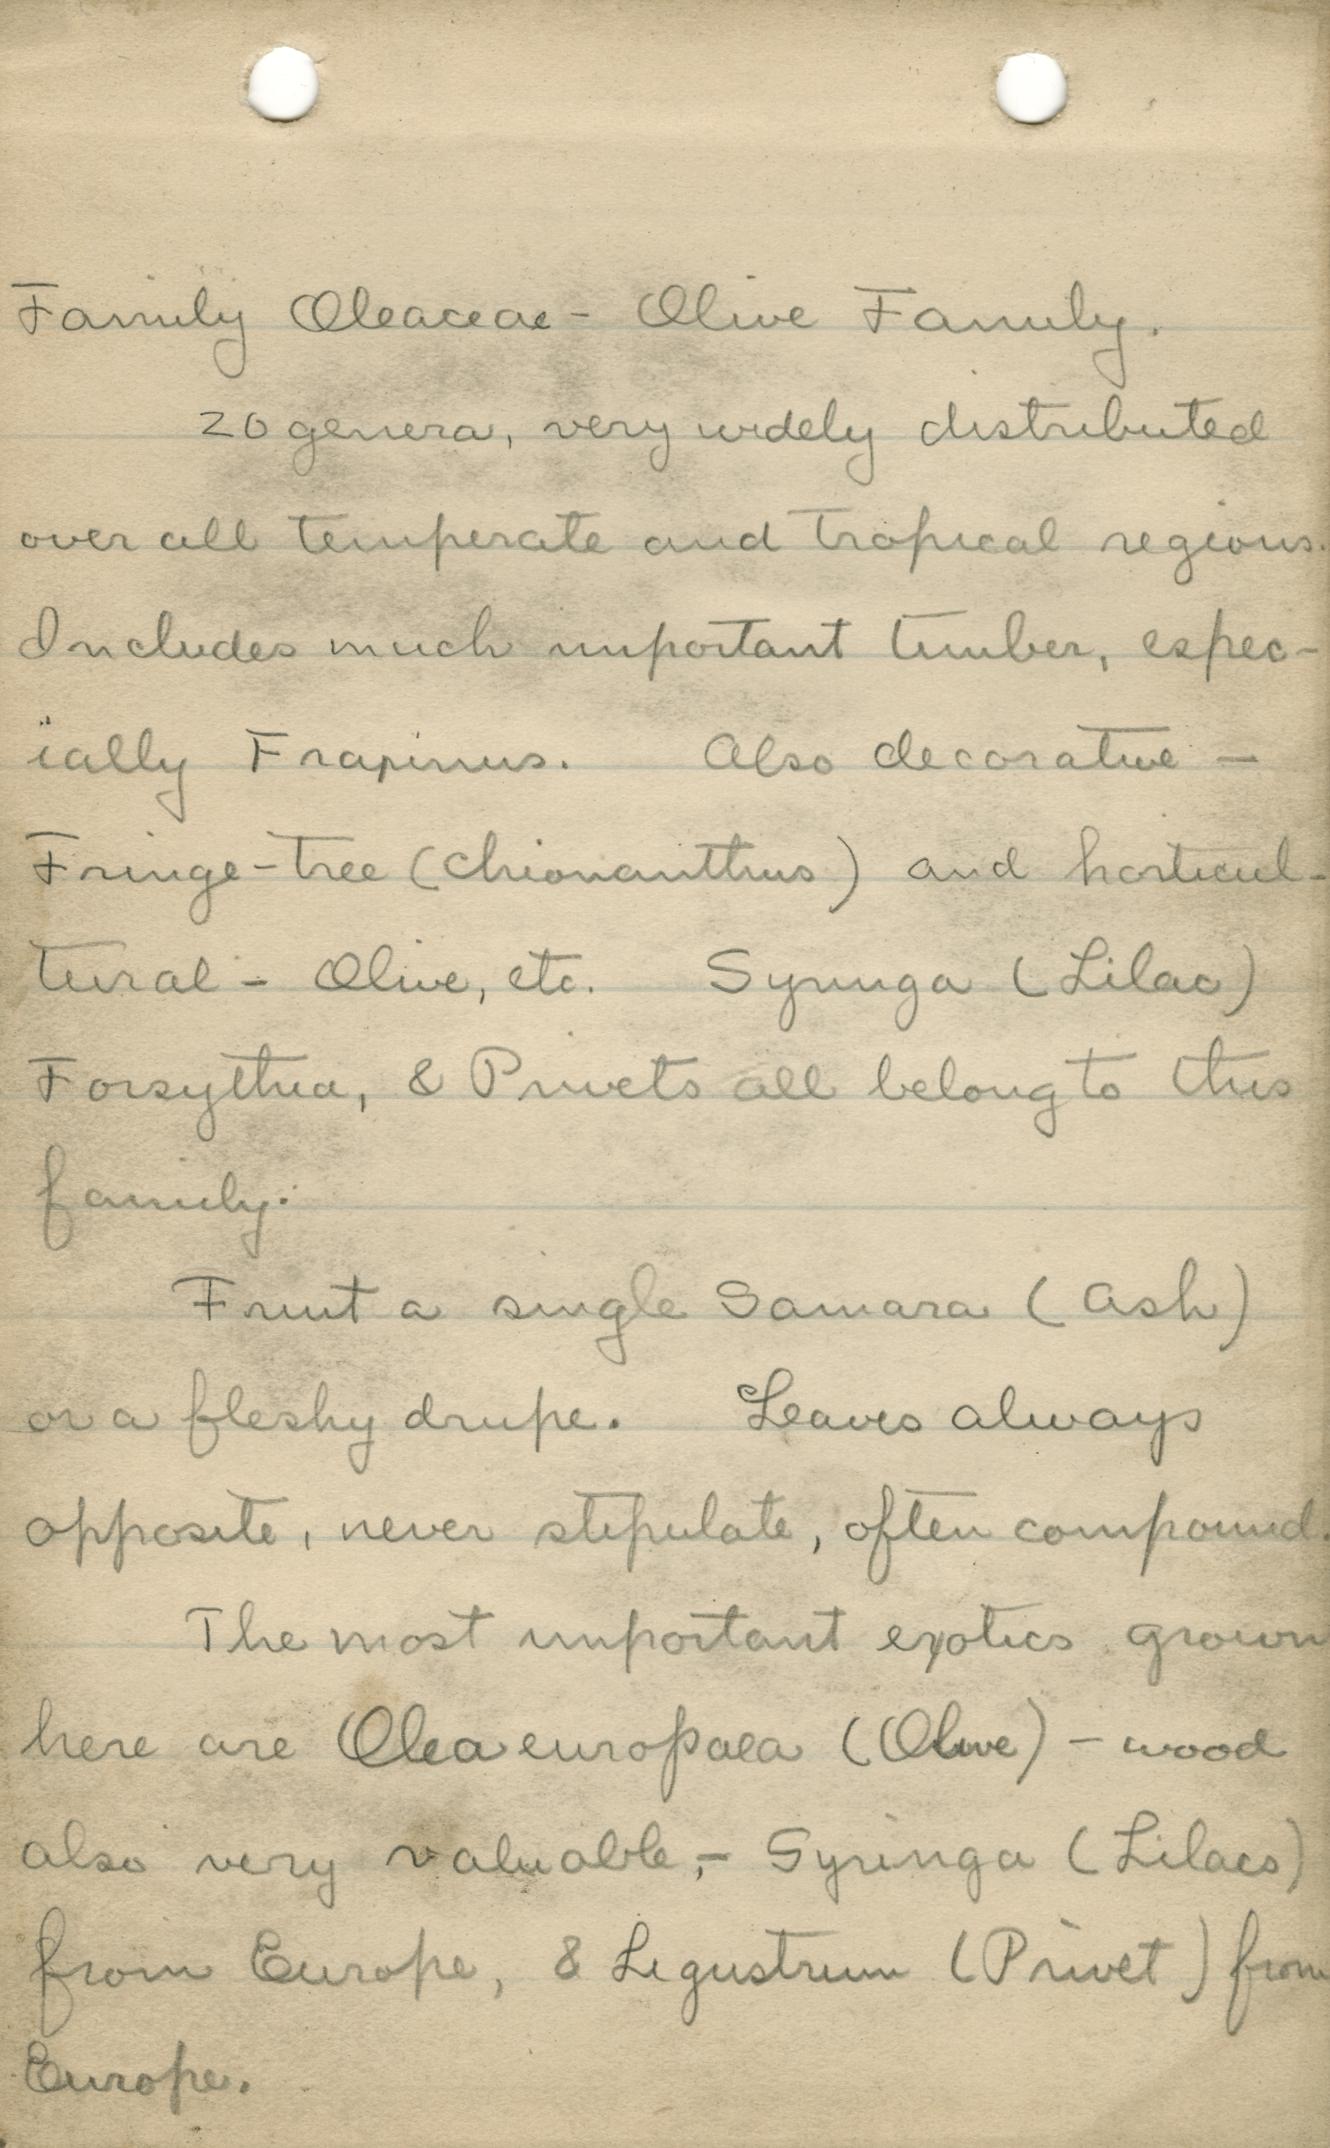 Family Oleaceae - Olive Family.
20 genera, very widely distributed
over all temperate and tropical regions.
Includes much important timber, espec-
ially Fraxinus. Also decorative -
Fringe-tree (Chionanthus) and horticul-
tural - Olive, etc. Syringa (Lilac)
Forsythia, & Privets all belong to this
family.
Fruit a single Samara (Ash)
or a fleshy drupe. Leaves always
opposite, never stipulate, often compound.
The most important exotics grown
here are Olea europaea (Olive) - wood
also very valuable, - Syringa (Lilacs)
from Europe, & Ligustrum (Privet) from
Europe.